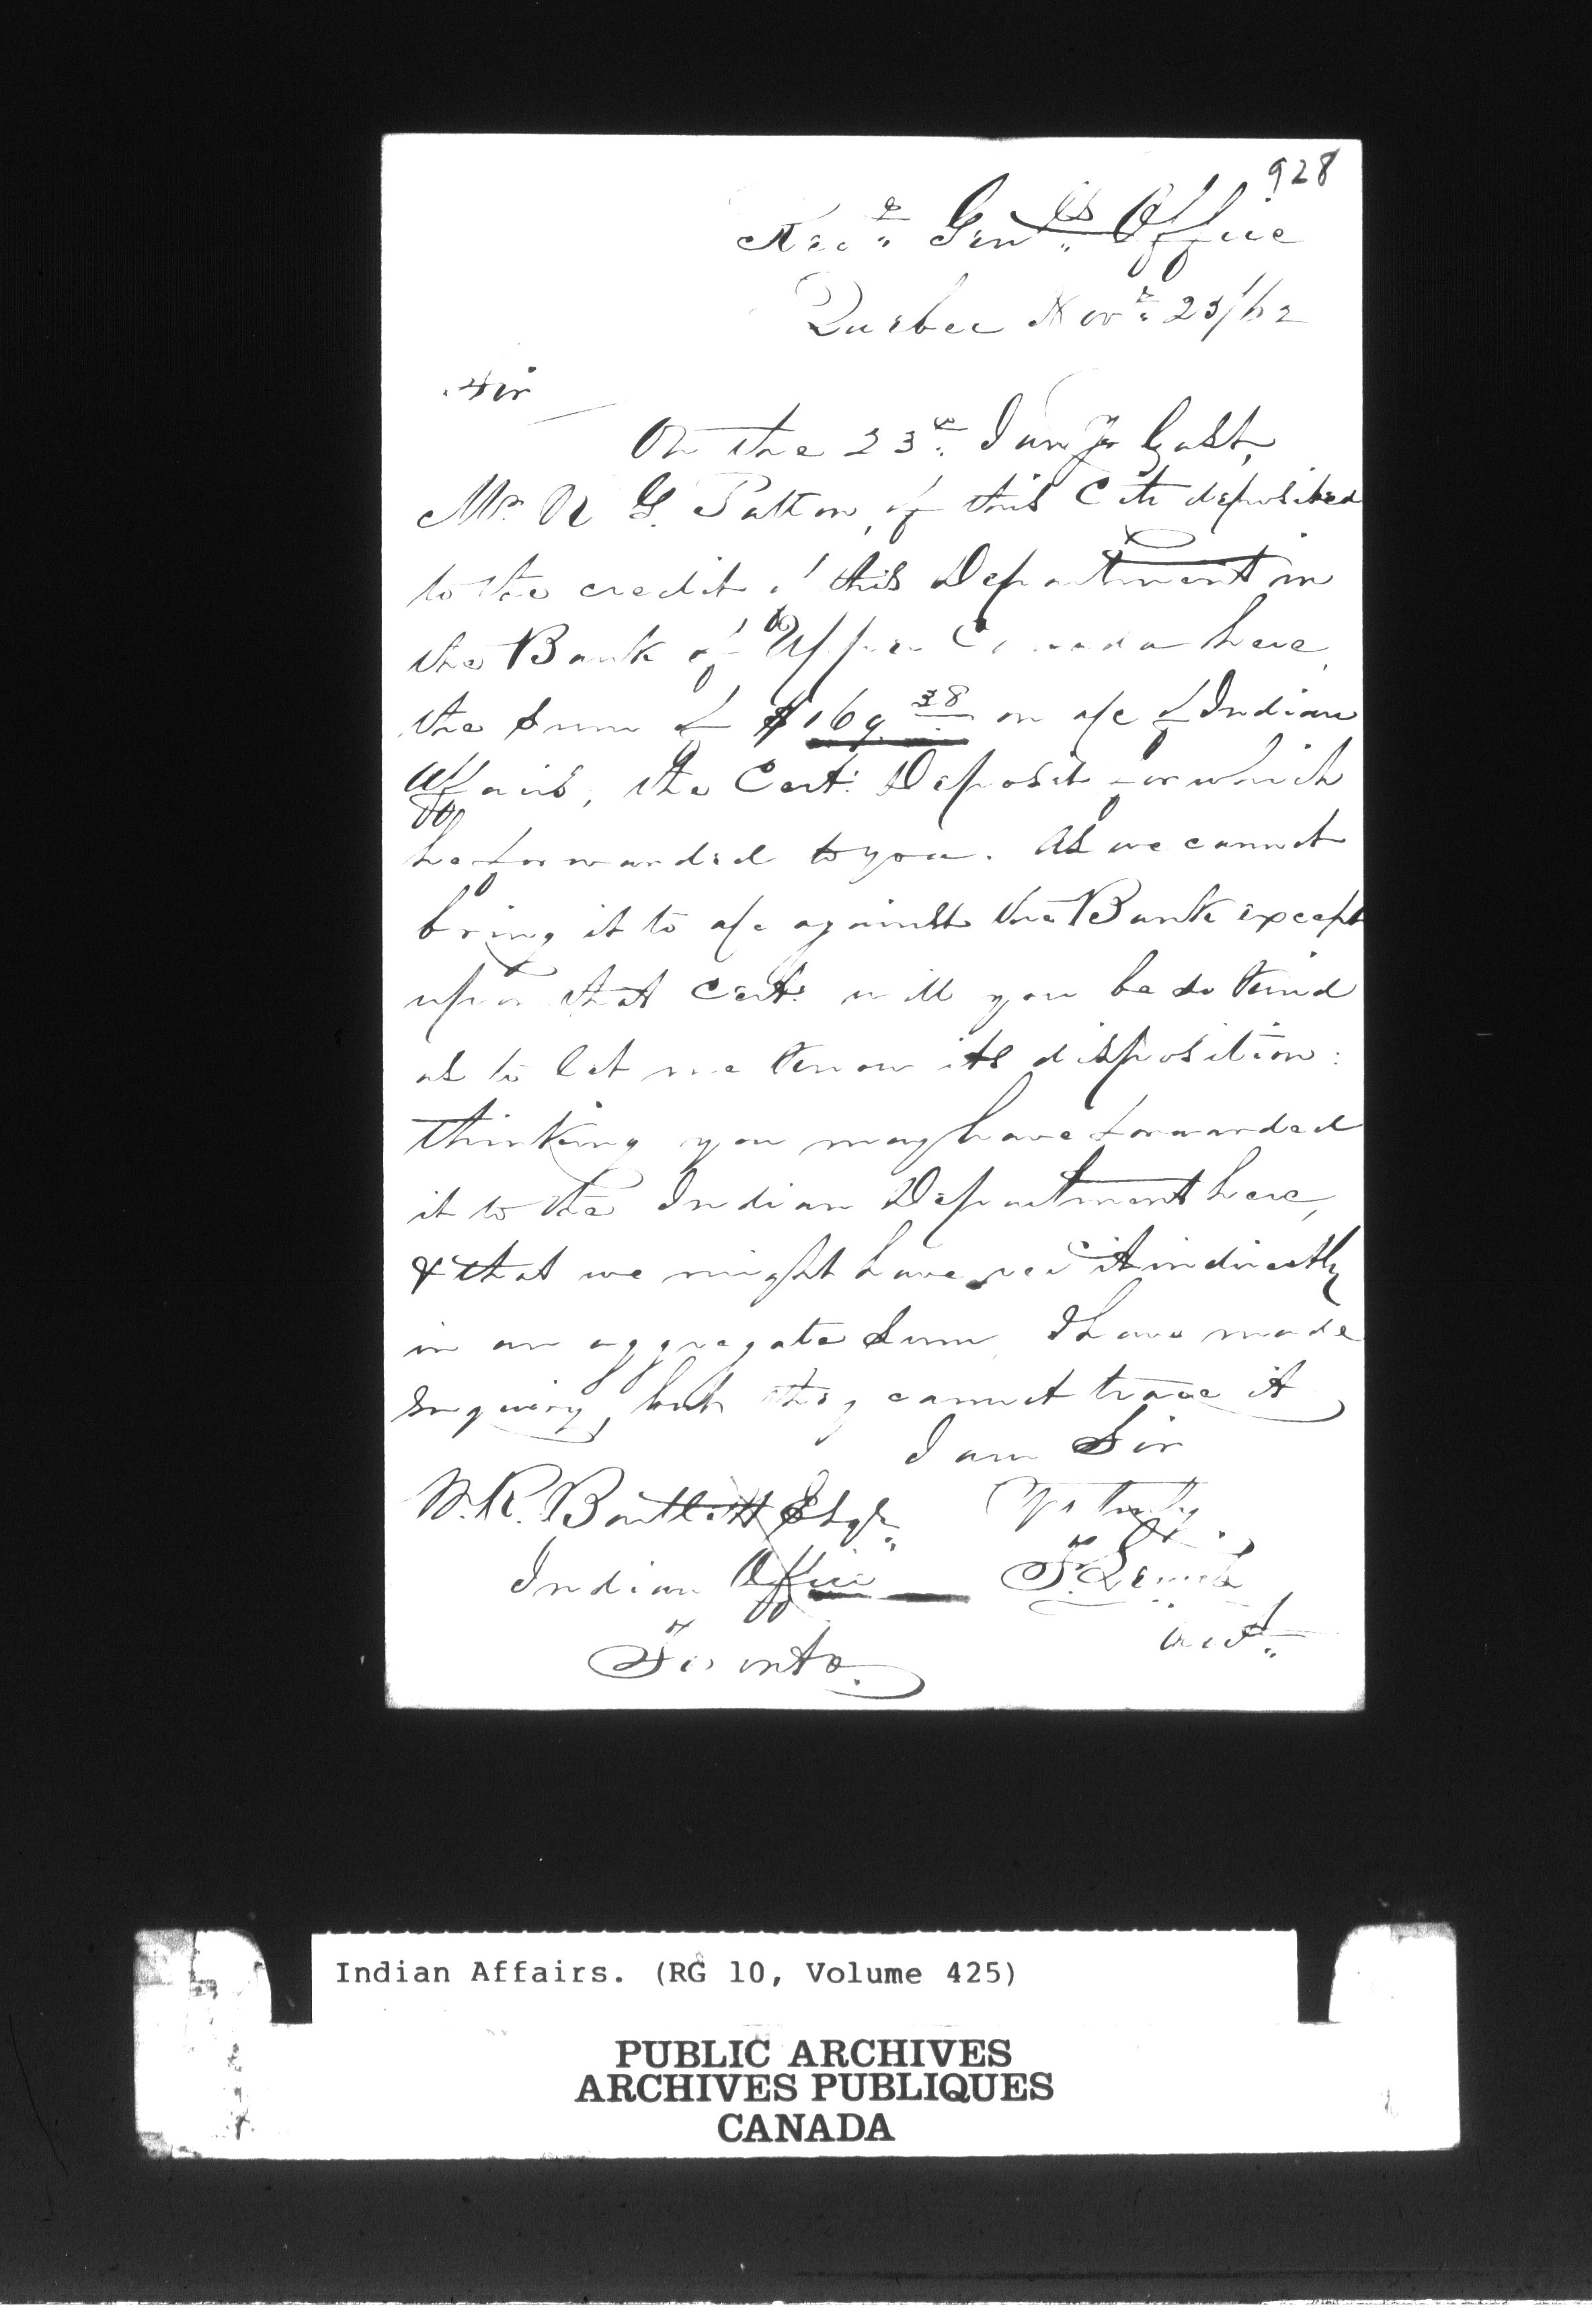 928
Recr Genls Office
Quebec Novr 23/62
Sir
On the 23rd Jany last,
Mr. N G. Patton, of this City deposited
to the credit of this Department in
the Bank of Upper Canada here,
the Sum of $169.38 on a/c of Indian
Affairs, the Cert: Deposit for which
he forwarded to you. As we cannot
bring it to a/c against the Bank except
upon that Cert: will you be so kind
as to let me know its disposition:
thinking you may have forwarded
it to the Indian Department here,
& that we might have recd it indirectly
in an aggregate Sum, I have made
enquiry, but they cannot trace it
I am Sir
W.R. Bartlett Esqr. Yrs truly
Indian Office
Toronto. Acct.
Indian Affairs. (RG 10, Volume 425)
PUBLIC ARCHIVES
ARCHIVES PUBLIQUES
CANADA